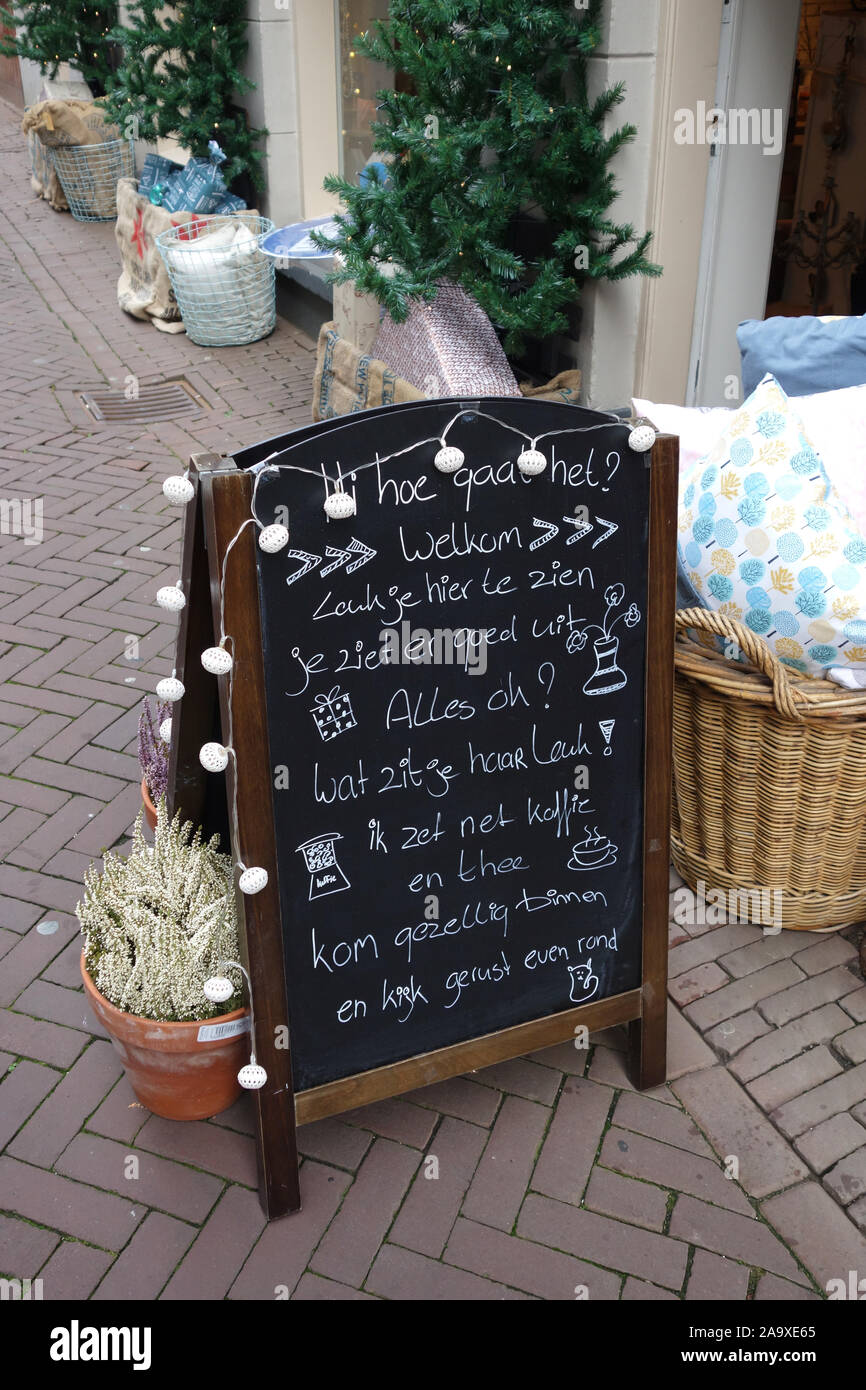 Hi hoe gaat het?
>>> Welkom >>>
Leuk je hier te zien
je ziet er goed uit
Alles oh?
wat zit je haar leuk!
ik zet net koffie
en thee
koffie
kom gezellig binnen
en kijk gerust even rond
alamy
Image ID: 2A9XE65
www.alamy.com